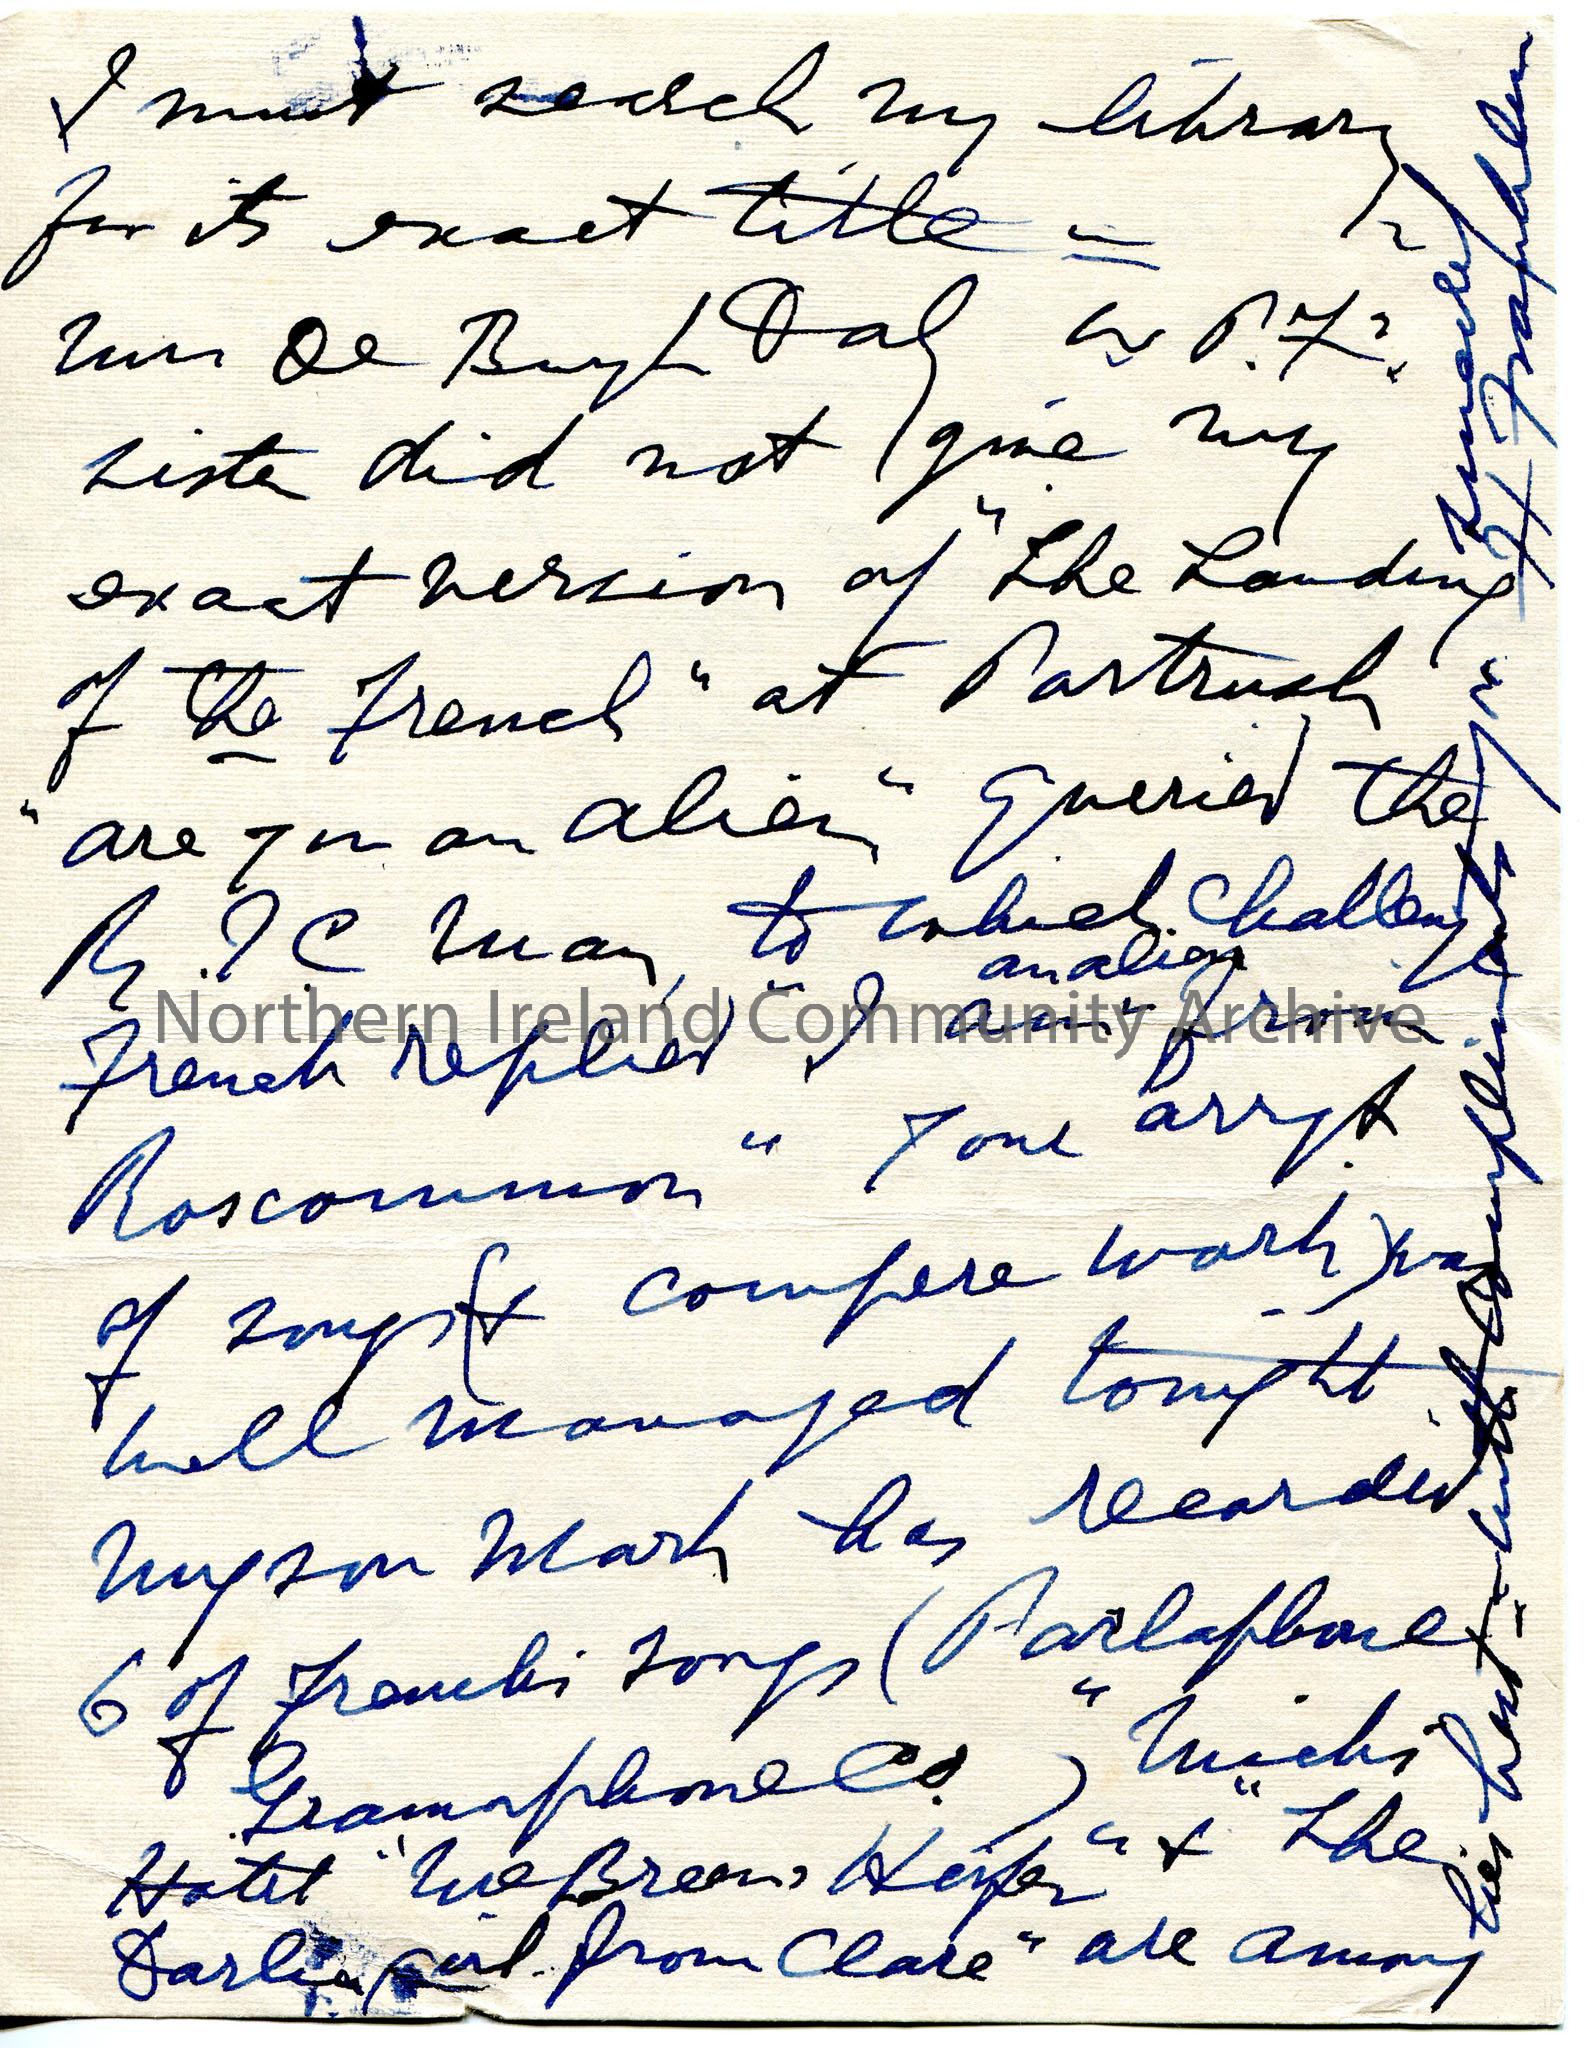 I must search my library
for its exact title =
Mrs De Burgh Daly or P.F's.
sister did not give my
exact version of "The Landing
of the French" at Portrush
"are you an alien" queried the
R.I.C man, to which challenge
French replied "I am an alien from
Roscommon" Your arrgt.
of songs (& compere work) was
well managed tonight
My son Mark has recorded
6 of French's songs (Parlaphone
Gramophone Co.) "Micks
Hotel" "McBreens Heifer" & "The
Darlin girl from Clare" are among
his best - with compliments
yours sincerely
Northern Ireland Community Archive